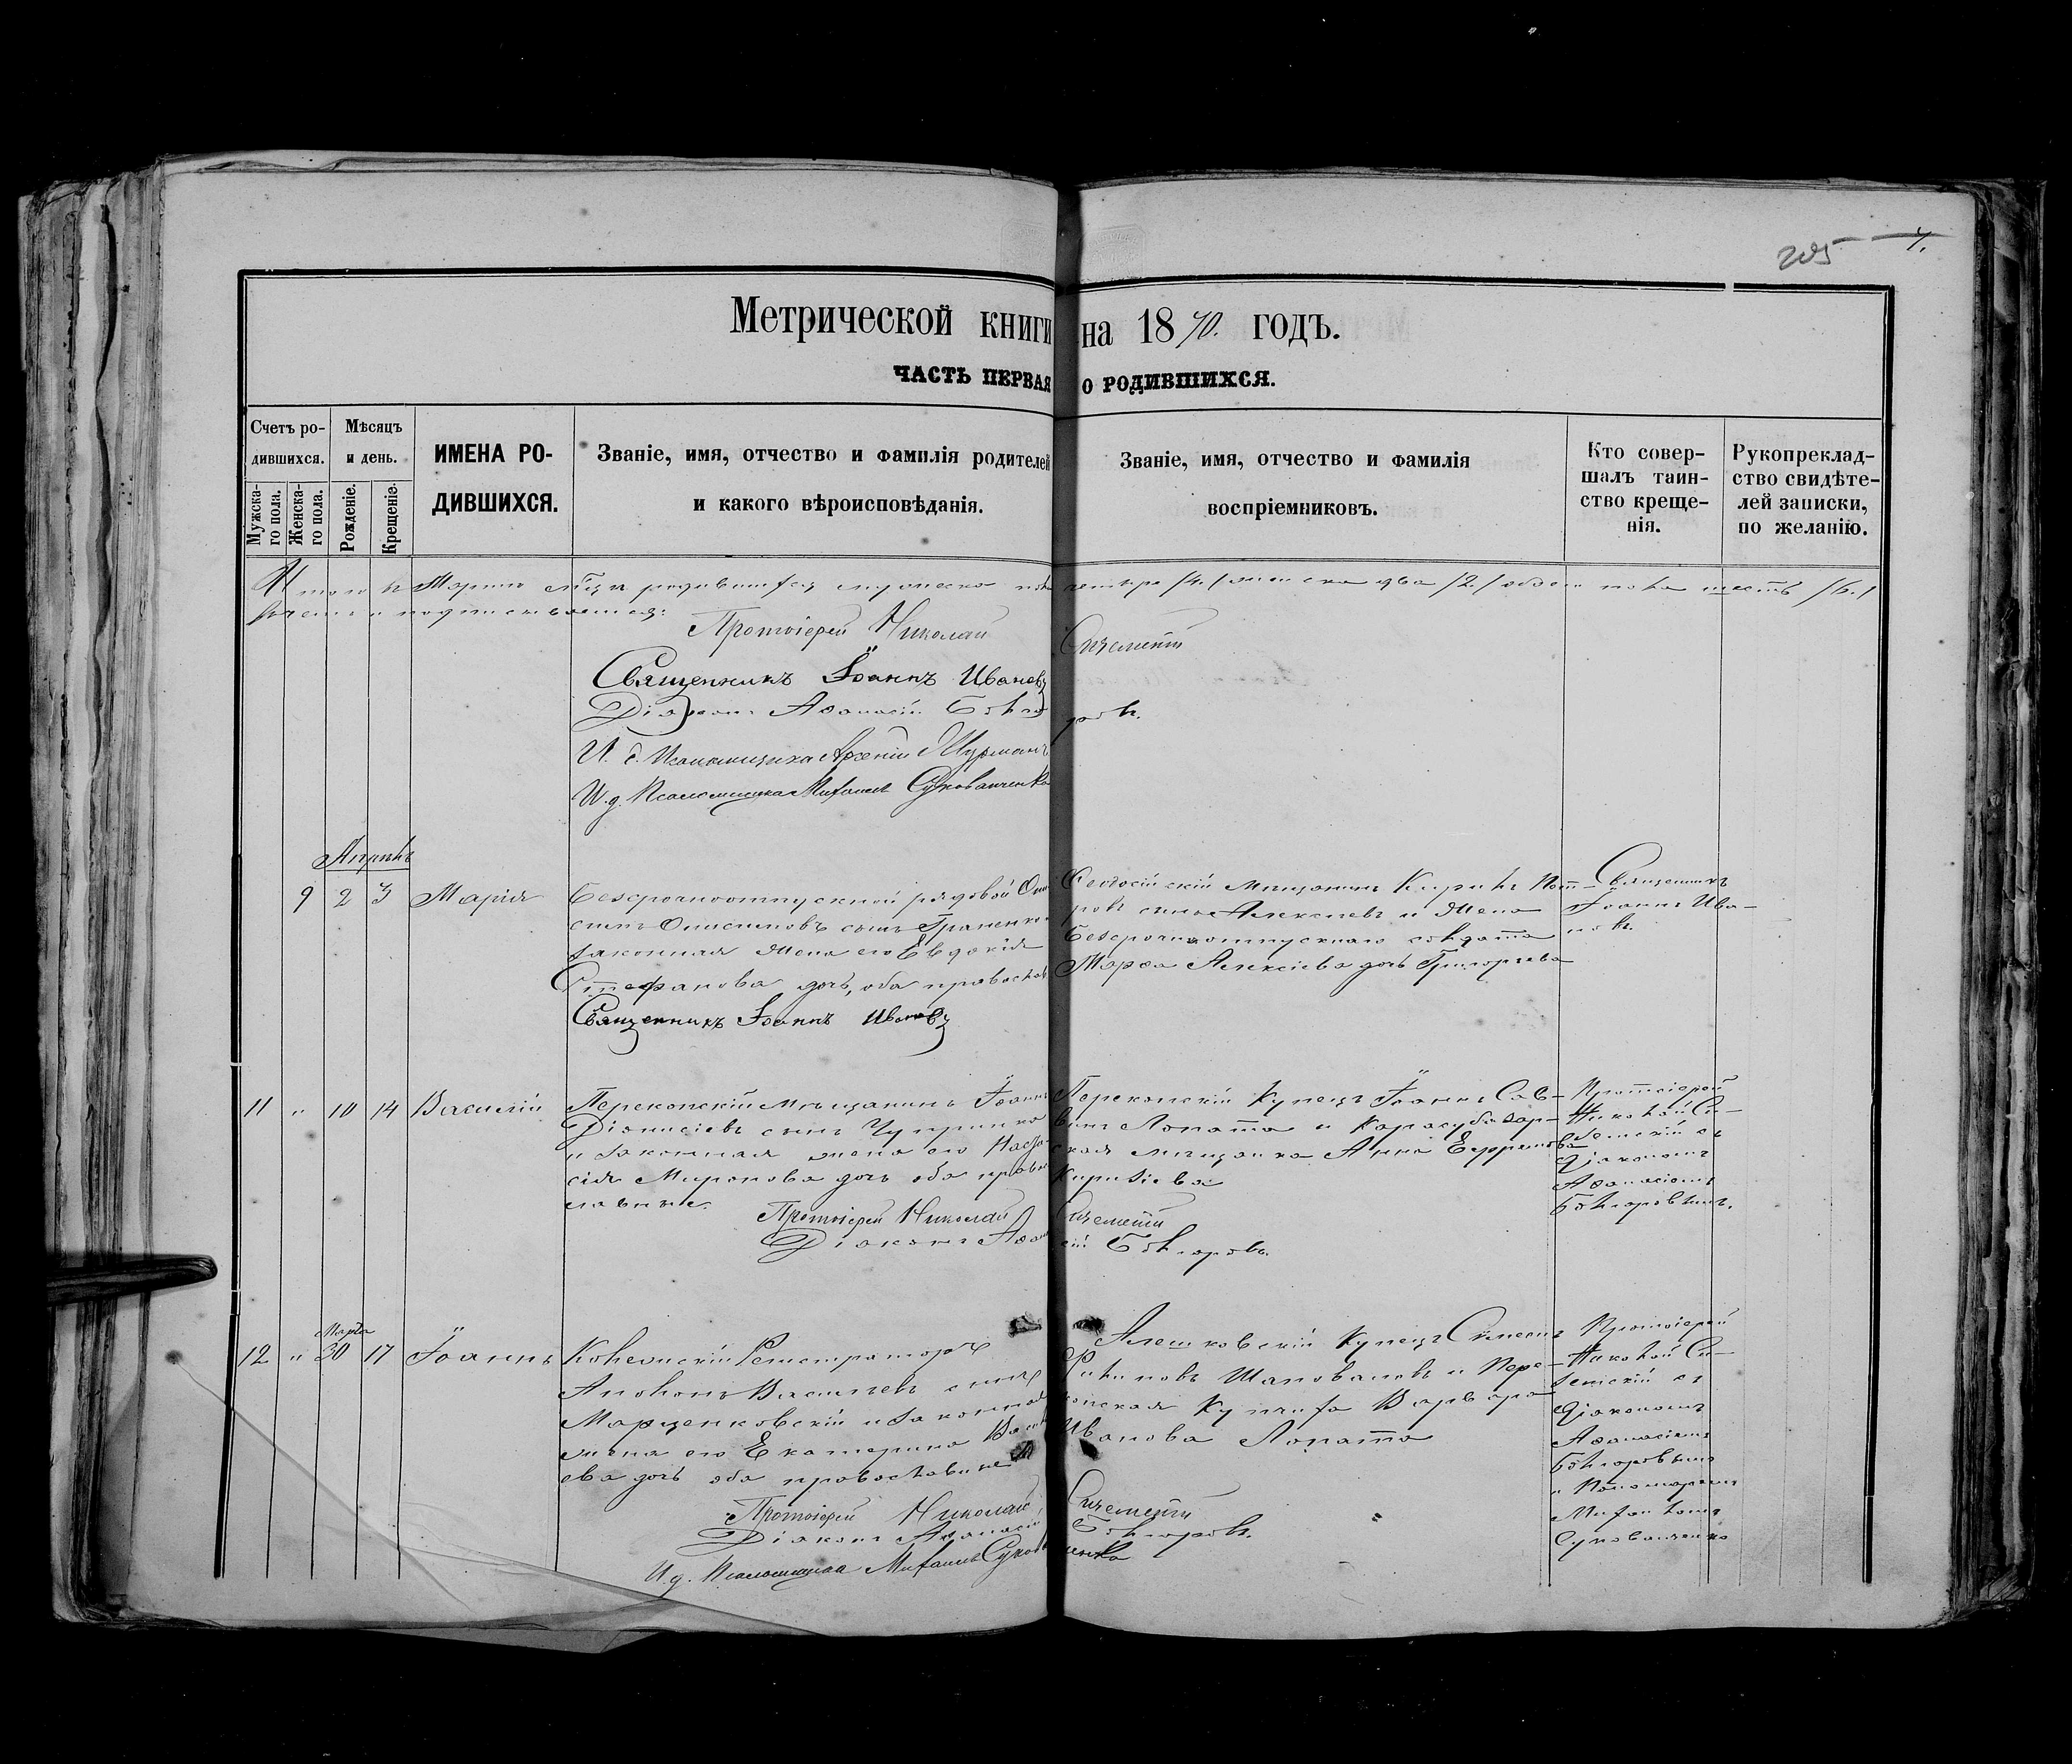 205 7.
Метрической книги на 1870. годъ.
ЧАСТЬ ПЕРВАЯ О РОДИВШИХСЯ.
Счетъ ро-
дившихся.
Мужска-
го пола.
Женска-
го пола.
Мѣсяцъ
и день.
Рожденіе.
Крещеніе.
ИМЕНА РО-
ДИВШИХСЯ.
Званіе, имя, отчество и фамилія родителей
и какого вѣроисповѣданія.
Званіе, имя, отчество и фамилія
воспріемниковъ.
Кто совер-
шалъ таин-
ство креще-
нія.
Рукоприклад-
ство свидѣте-
лей записки,
по желанію.
Итого в Мартѣ м-цѣ родившихся мужеска пола четыре /4./ женска два /2./ обоего пола шесть /6./
Протоіерей Николай
Священникъ Іоаннъ Ивановъ
Діаконъ Аѳанасій Бѣлгоровъ.
И. д. Псаломщика Арсеній Шурманъ
И. д. Псаломщика Михаилъ Суковаченко
Апрѣль
9 2 3 Марія
Безсрочноотпускной рядовой Они-
симъ Онисимовъ сынъ Граненко
законная жена его Евдокія
Стефанова дочь, оба православ.
Священникъ Іоаннъ Ивановъ
Ѳеодосійскій мѣщанинъ Кирилъ Пет-
ровъ сынъ Алексѣевъ и жена
Безсрочноотпускнаго солдата
Марѳа Алексіева дочь Григорьева
Священникъ
Іоаннъ Ива-
новъ.
11 „ 10 14 Василій
Перекопскій мѣщанинъ Іоаннъ
Діонисіевъ сынъ Чуприна
и законная жена его Наста-
сія Миронова дочь оба право-
славные.
Протоіерей Николай
Діаконъ Аѳанасій Бѣлгоровъ.
Перекопскій Купецъ Іоаннъ Сав-
винъ Лопата и Карасубазар-
ская мѣщанка Анна Ефремова
Протоіерей
Николай Си-
Діакономъ
Аѳанасіемъ
Бѣлгоровымъ.
12 „ Марта 30 17 Іоаннъ
Колежскій Регистраторъ
Аполонъ Васильевъ сынъ
Марценковскій и законная
жена его Екатерина Василь-
ева дочь оба православные
Протоіерей Николай
Діаконъ Аѳанасій Бѣлгоровъ.
И. д. Псаломщика Михаилъ Суковаченко
Алешковскій Купецъ Симеонъ
Филиповъ Шаповаловъ и Пере-
копская Купчиха Варвара
Иванова Лопата
Протоіерей
Николай Си-
Діакономъ
Аѳанасіемъ
Бѣлгоровымъ
и Пономаремъ
Михаиломъ
Суковаченко